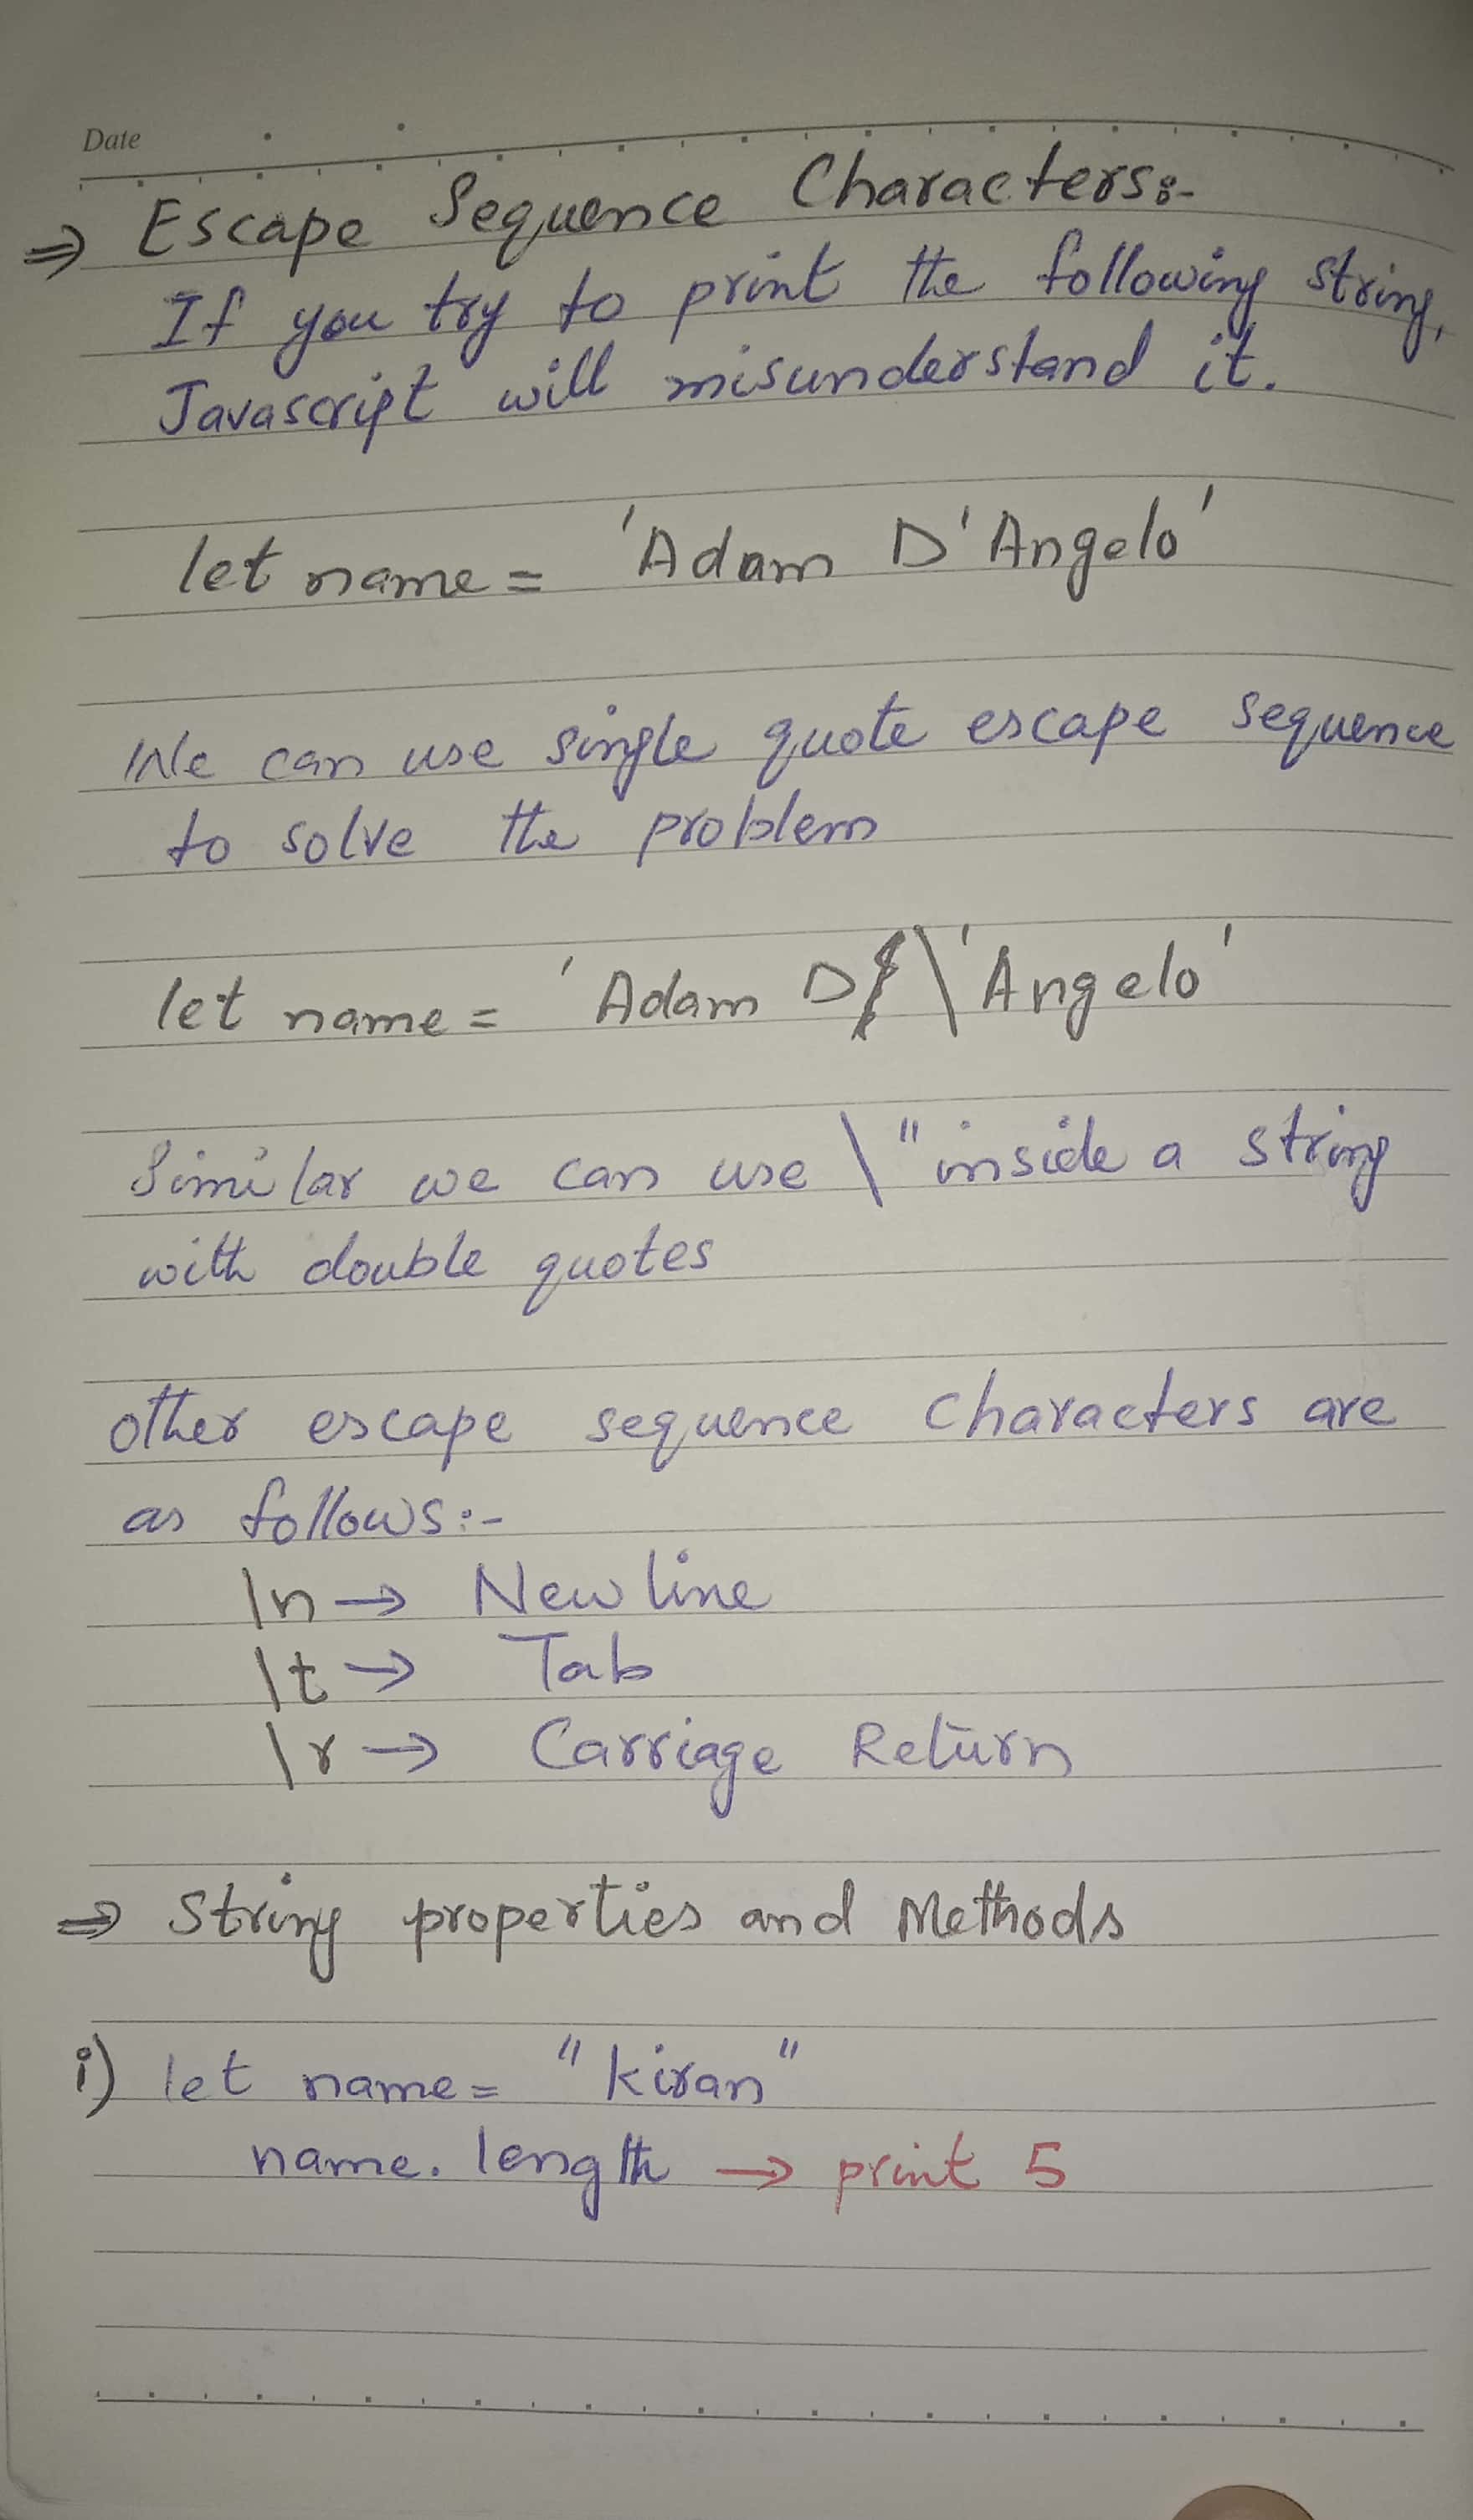 Date
⇒ Escape Sequence Characters:-
If you try to print the following string,
Javascript will misunderstand it.
let name = 'Adam D'Angelo'
We can use single quote escape sequence
to solve the problem
let name = 'Adam D\'Angelo'
Similar we can use \" inside a string
with double quotes
other escape sequence characters are
as follows:-
\n → New line
\t → Tab
\r → Carriage Return
⇒ String properties and Methods
i) let name = "kiran"
name.length → print 5